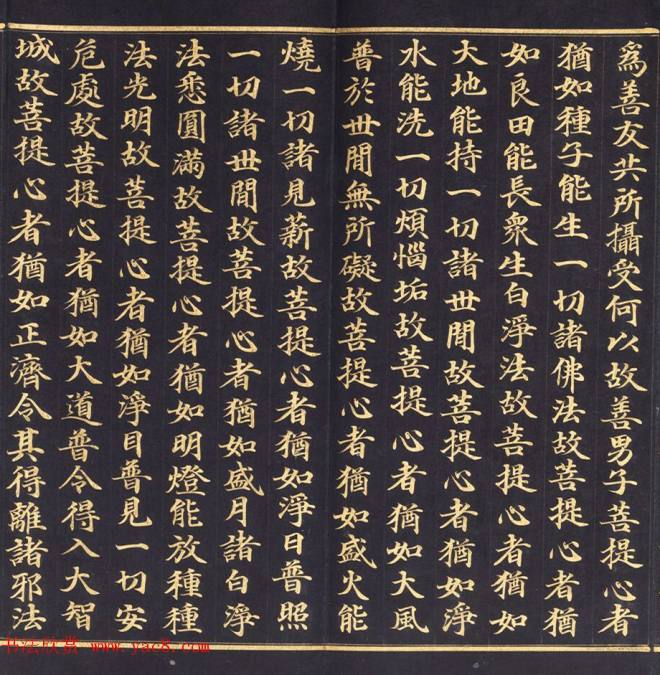 為善友共所攝受何以故善男子菩提心者
猶如種子能生一切諸佛法故菩提心者猶
如良田能長眾生白淨法故菩提心者猶如
大地能持一切諸世間故菩提心者猶如淨
水能洗一切煩惱垢故菩提心者猶如大風
普於世間無所礙故菩提心者猶如盛火能
燒一切諸見薪故菩提心者猶如淨日普照
一切諸世間故菩提心者猶如盛月諸白淨
法悉圓滿故菩提心者猶如明燈能放種種
法光明故菩提心者猶如淨目普見一切安
危處故菩提心者猶如大道普令得入大智
城故菩提心者猶如正濟令其得離諸邪法
书法欣赏 www.yac8.com